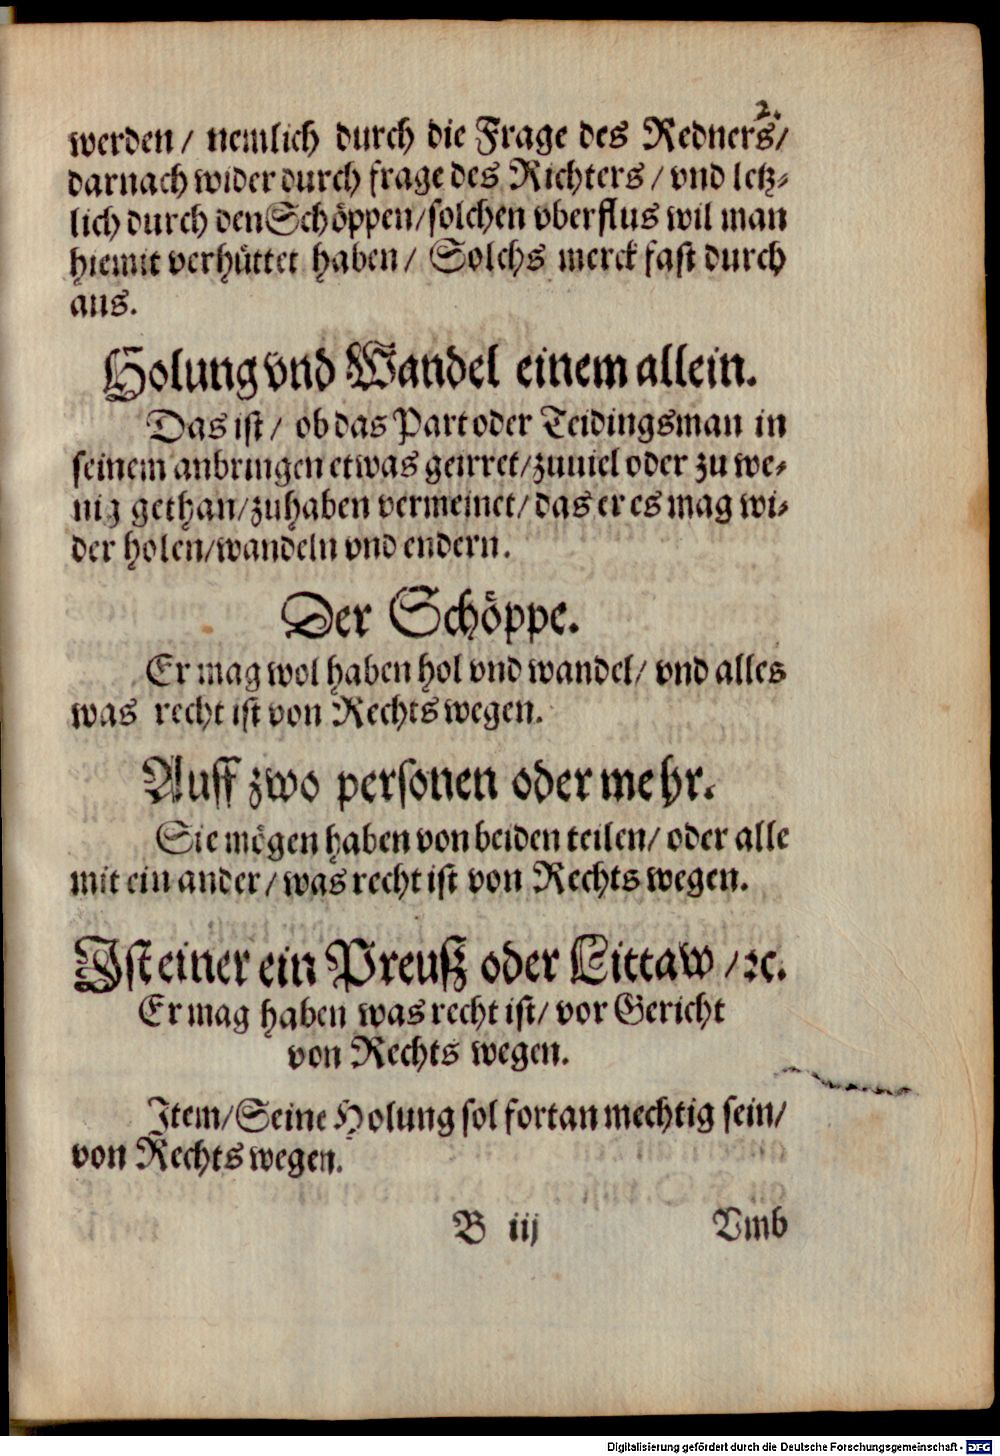 2.
werden/ nemlich durch die Frage des Redners/
darnach wider durch frage des Richters/ vnd letz⸗
lich durch den Schöppen/ solchen vberflus wil man
hiemit verhüttet haben/ Solchs merck fast durch
aus.
Holung vnd Wandel einem allein.
Das ist/ ob das Part oder Teidingsman in
seinem anbringen etwas geirret/ zuuiel oder zu we⸗
nig gethan/ zuhaben vermeinet/ das er es mag wi⸗
der holen/ wandeln vnd endern.
Der Schöppe.
Er mag wol haben hol vnd wandel/ vnd alles
was recht ist von Rechts wegen.
Auff zwo personen oder mehr.
Sie mögen haben von beiden teilen/ oder alle
mit ein ander/ was recht ist von Rechts wegen.
Ist einer ein Preuß oder Littaw/ ꝛc.
Er mag haben was recht ist/ vor Gericht
von Rechts wegen.
Item/ Seine Holung sol fortan mechtig sein/
von Rechts wegen.
B iij Vmb
Digitalisierung gefördert durch die Deutsche Forschungsgemeinschaft - DFG